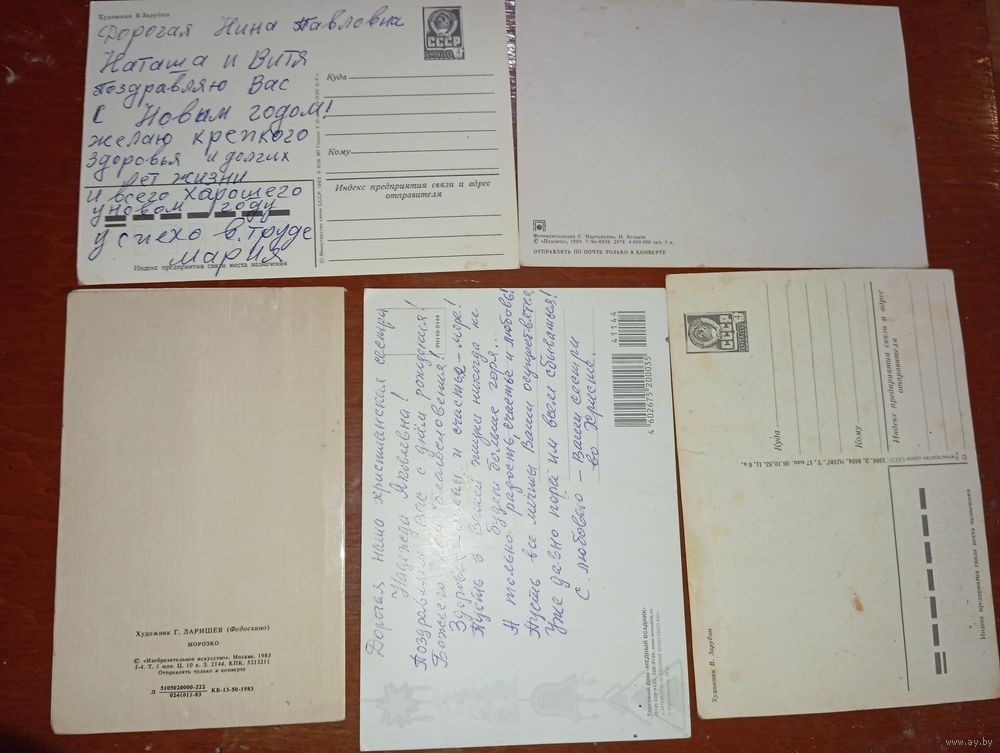 Художник В Зарубин
Дорогая Нина Павловна
Наташа и Витя
поздравляю Вас
С Новым годом!
желаю крепкого
здоровья и долгих
лет жизни
и всего харошего
у новом году
успехов в труде
Мария
Индекс предприятия связи места назначения
СССР
Куда
Кому
Индекс предприятия связи и адрес
отправителя
Фотокомпозиция С. Мартынкина, Н. Агзнане
© «Планета», 1989.
ОТПРАВЛЯТЬ ПО ПОЧТЕ ТОЛЬКО В КОНВЕРТЕ
Художник Г. ЛАРИШЕВ (Федоскино)
МОРОЗКО
© «Изобразительное искусство», Москва, 1983
5-4. Т. 1 млн. Ц. 10 к. З. 2144. КПК. 5213211
Отправлять только в конверте
Л 5105020000-222
024(01)-83 КБ-13-50-1983
Дорогая наша христианская сестра
Надежда Яковлевна!
Поздравляем Вас с днём рождения!
Божьего Вам благословения!
Здоровья – и счастья – море!
Пусть в Вашей жизни никогда не
будет больше горя...
А только радость, счастье и любовь!
Пусть все мечты Ваши осуществятся,
Уже давно пора им всем сбываться!
С любовью – Ваши сестры
во Христе.
41144
4 602675 200035
Торговый Дом «МЕДНЫЙ ВСАДНИК»
СССР
Куда
Кому
Индекс предприятия связи и адрес
отправителя
Индекс предприятия связи места назначения
Художник В. Зарубин
www.ay.by